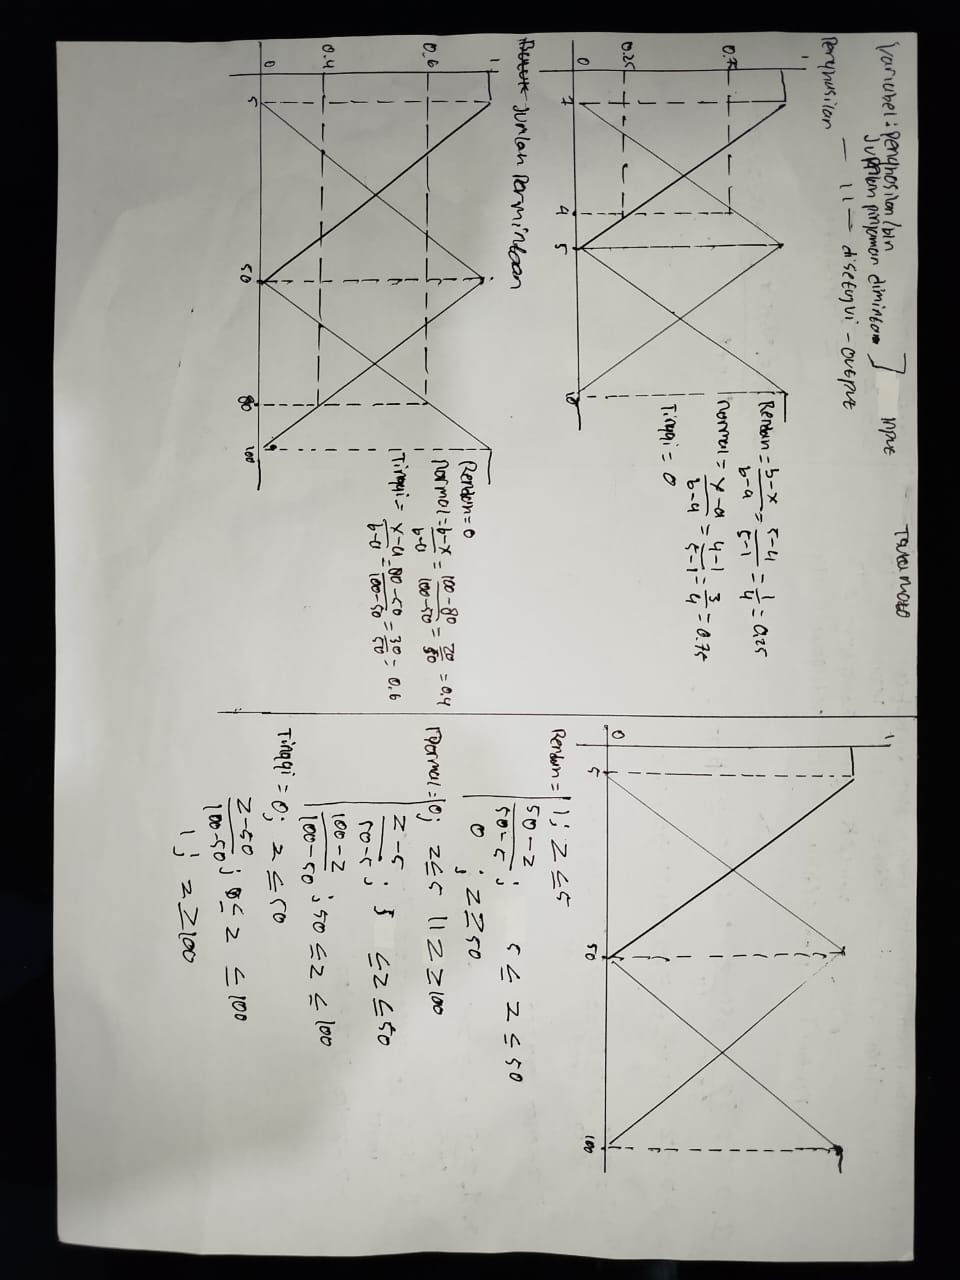 Variabel : Penghasilan/bln ] Input
Jumlah pinjaman diminta
— 11 — disetujui - output
Tsukamoto
Penghasilan
1
0.75
0.25
0
1 4 5 10
Rendah = b-x / b-a = 5-4 / 5-1 = 1/4 = 0,25
normal = x-a / b-a = 4-1 / 5-1 = 3/4 = 0.75
Tinggi = 0
Jumlah Permintaan
1
0.6
0.4
0
5 50 80 100
Rendah = 0
normal = b-x / b-a = 100-80 / 100-50 = 20/50 = 0.4
Tinggi = x-a / b-a = 80-50 / 100-50 = 30/50 = 0.6
1
0
5 50 100
Rendah = 1; Z ≤ 5
50-Z / 50-5 ; 5 ≤ Z ≤ 50
0 ; Z ≥ 50
Normal = 0; Z ≤ 5 || Z ≥ 100
Z-5 / 50-5 ; 5 ≤ Z ≤ 50
100-Z / 100-50 ; 50 ≤ Z ≤ 100
Tinggi = 0; Z ≤ 50
Z-50 / 100-50 ; ≤ Z ≤ 100
1 ; Z ≥ 100